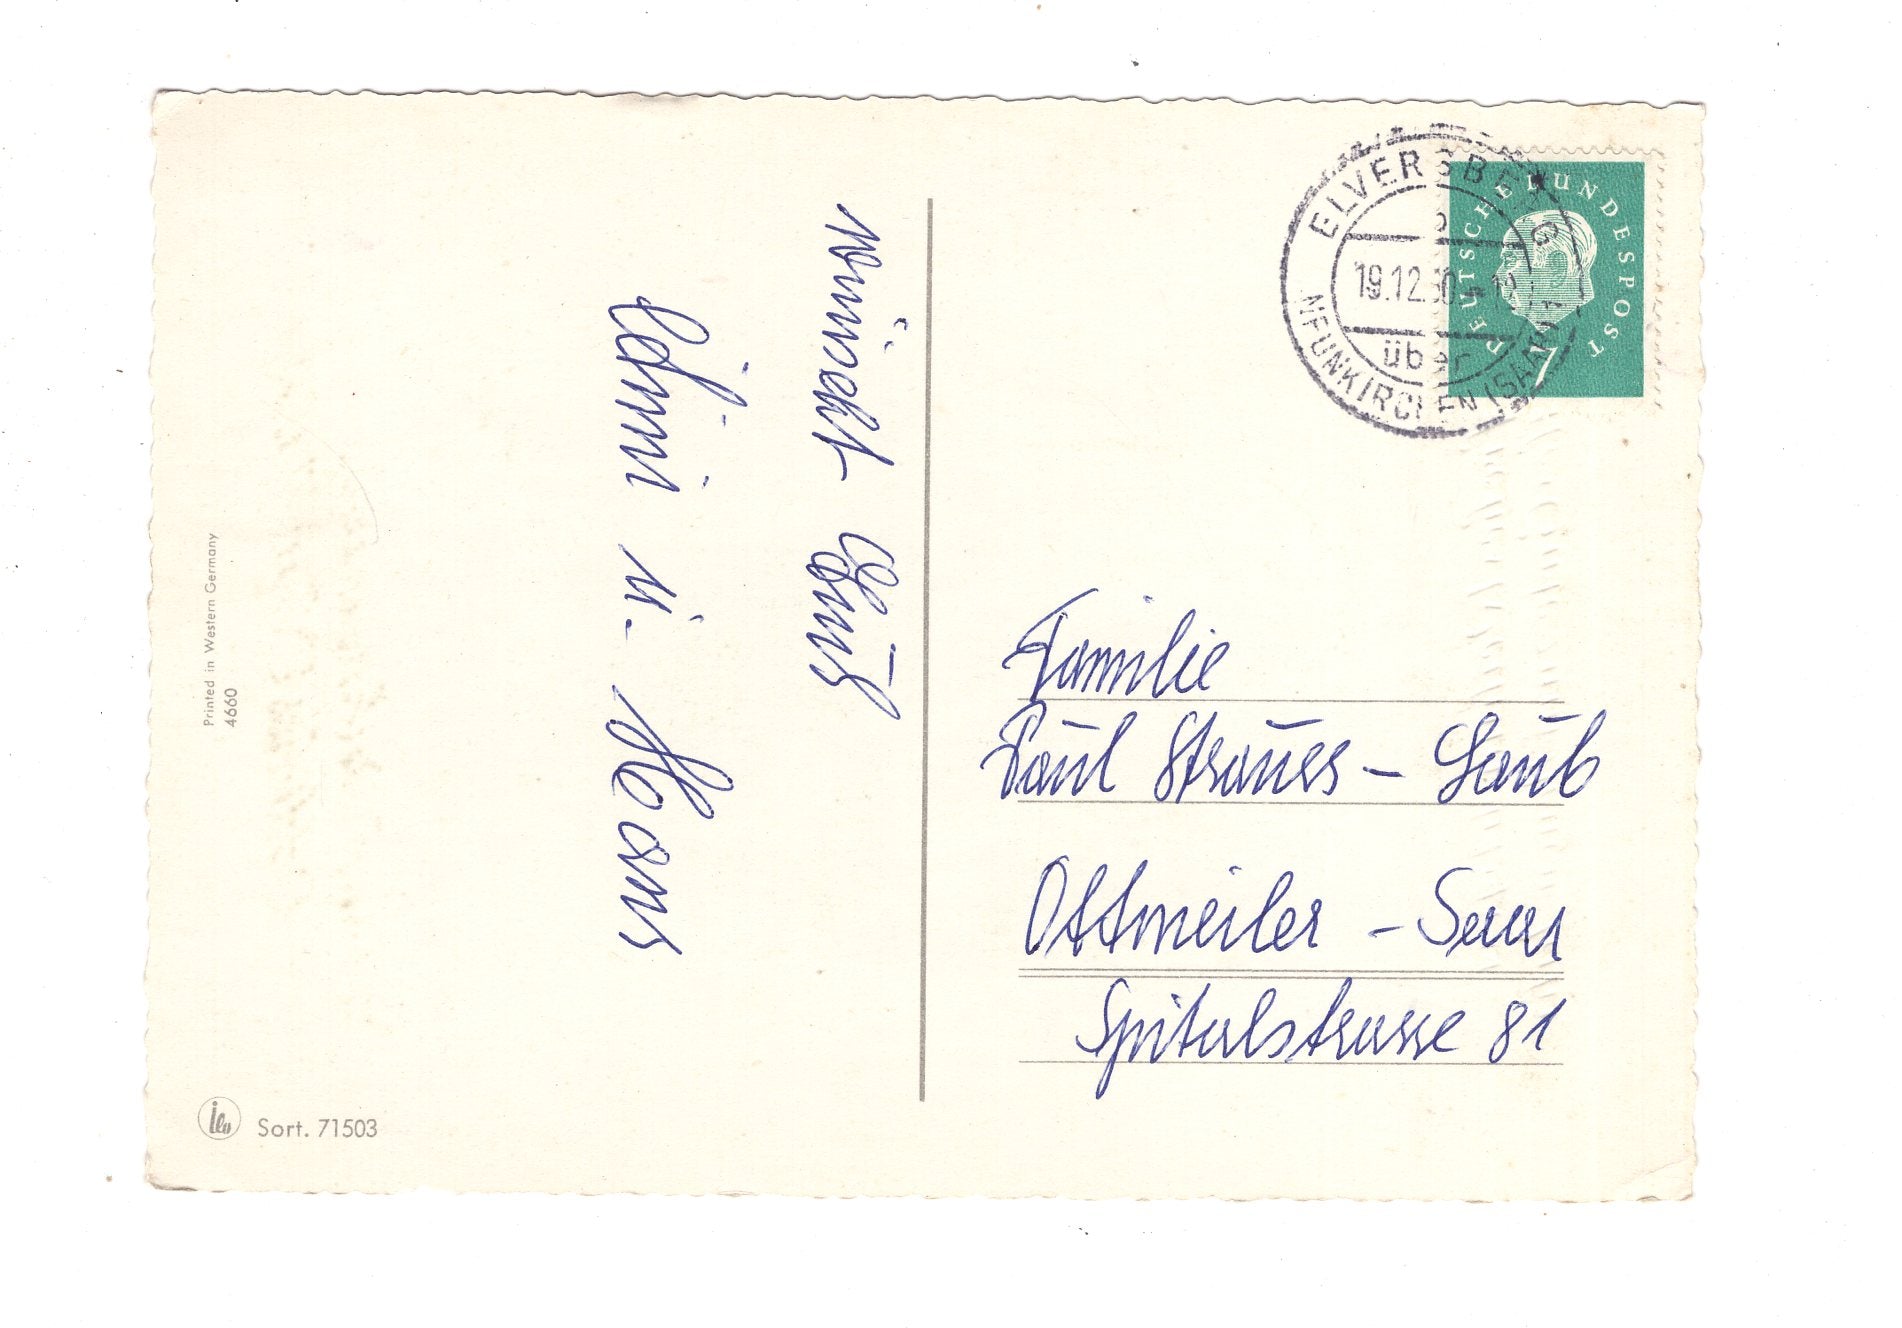 wünscht Euch
Edmi u. Hans
Familie
Paul Strauss - Laub
Ottweiler - Saar
Spitalstrasse 81
ELVERSBERG
19.12.60
über
NEUNKIRCHEN (SAAR)
DEUTSCHE BUNDESPOST
7
Printed in Western Germany
4660
Sort. 71503